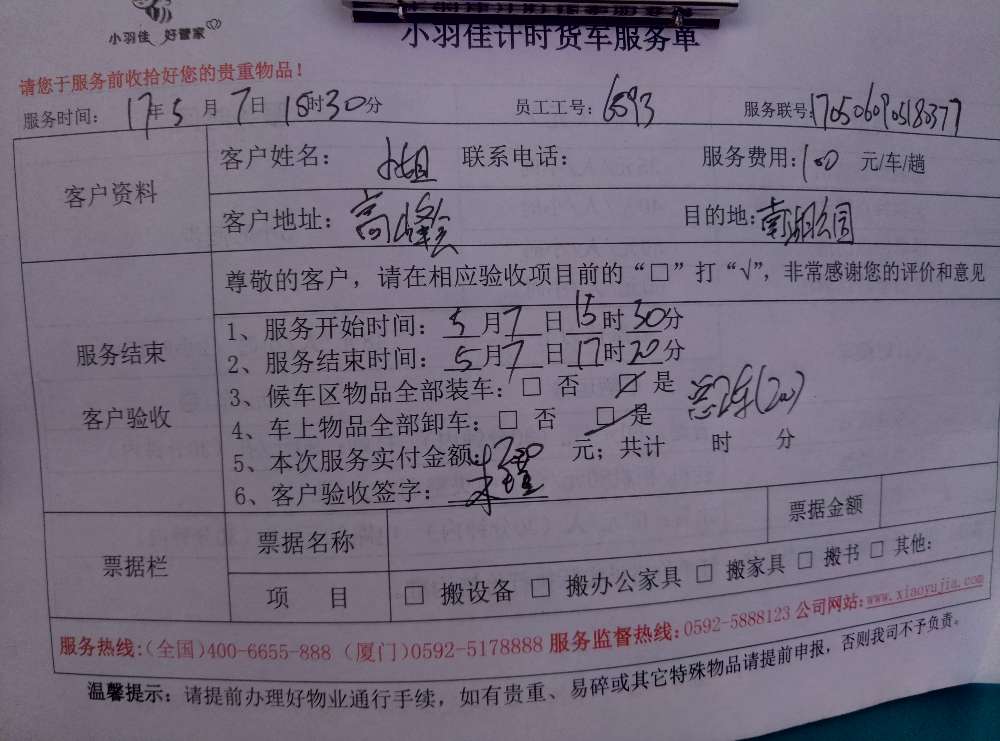 小羽佳 好管家
小羽佳计时货车服务单
请您于服务前收拾好您的贵重物品！
服务时间： 17年5月7日15时30分 员工工号：6593 服务联号：
客户资料
客户姓名： 联系电话： 服务费用：100 元/车/趟
客户地址： 目的地：南湖公园
尊敬的客户，请在相应验收项目前的“□”打“√”，非常感谢您的评价和意见
服务结束
客户验收
1、服务开始时间：5月7日15时30分
2、服务结束时间：5月7日17时20分
3、候车区物品全部装车：□ 否 ☑ 是
4、车上物品全部卸车：□ 否 ☑ 是
5、本次服务实付金额： 元；共计 时 分
6、客户验收签字：
票据栏
票据名称 票据金额
项 目 □ 搬设备 □ 搬办公家具 □ 搬家具 □ 搬书 □ 其他：
服务热线：(全国)400-6655-888 (厦门)0592-5178888 服务监督热线：0592-5888123 公司网站：www.xiaoyujia.com
温馨提示：请提前办理好物业通行手续，如有贵重、易碎或其它特殊物品请提前申报，否则我司不予负责。